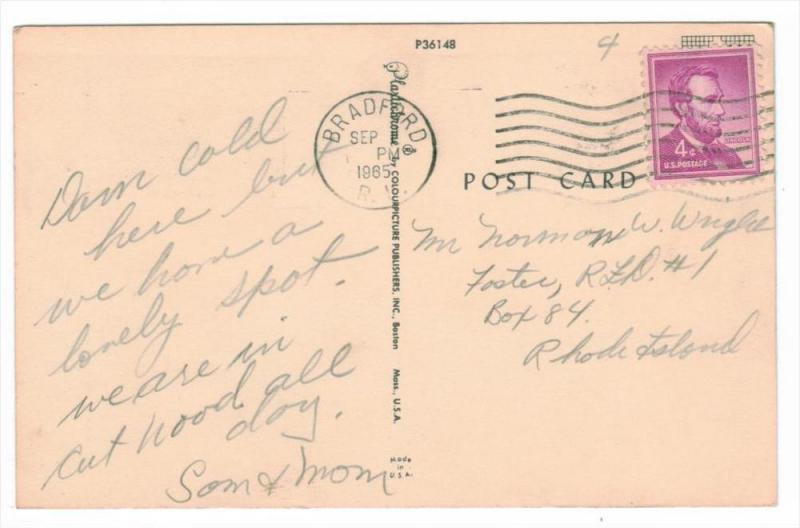 P36148
4
BRADFORD
SEP
PM
1965
R.I.
LINCOLN
4¢
U.S. POSTAGE
POST CARD
Dam cold
here but
we have a
lovely spot.
we are in
cut wood all
day.
Som & Mom
Plastichrome ® by COLOURPICTURE PUBLISHERS, INC., Boston Mass., U.S.A.
Made
in
U.S.A.
Mr Norman W. Wright
Foster, R.F.D. #1
Box 84.
Rhode Island